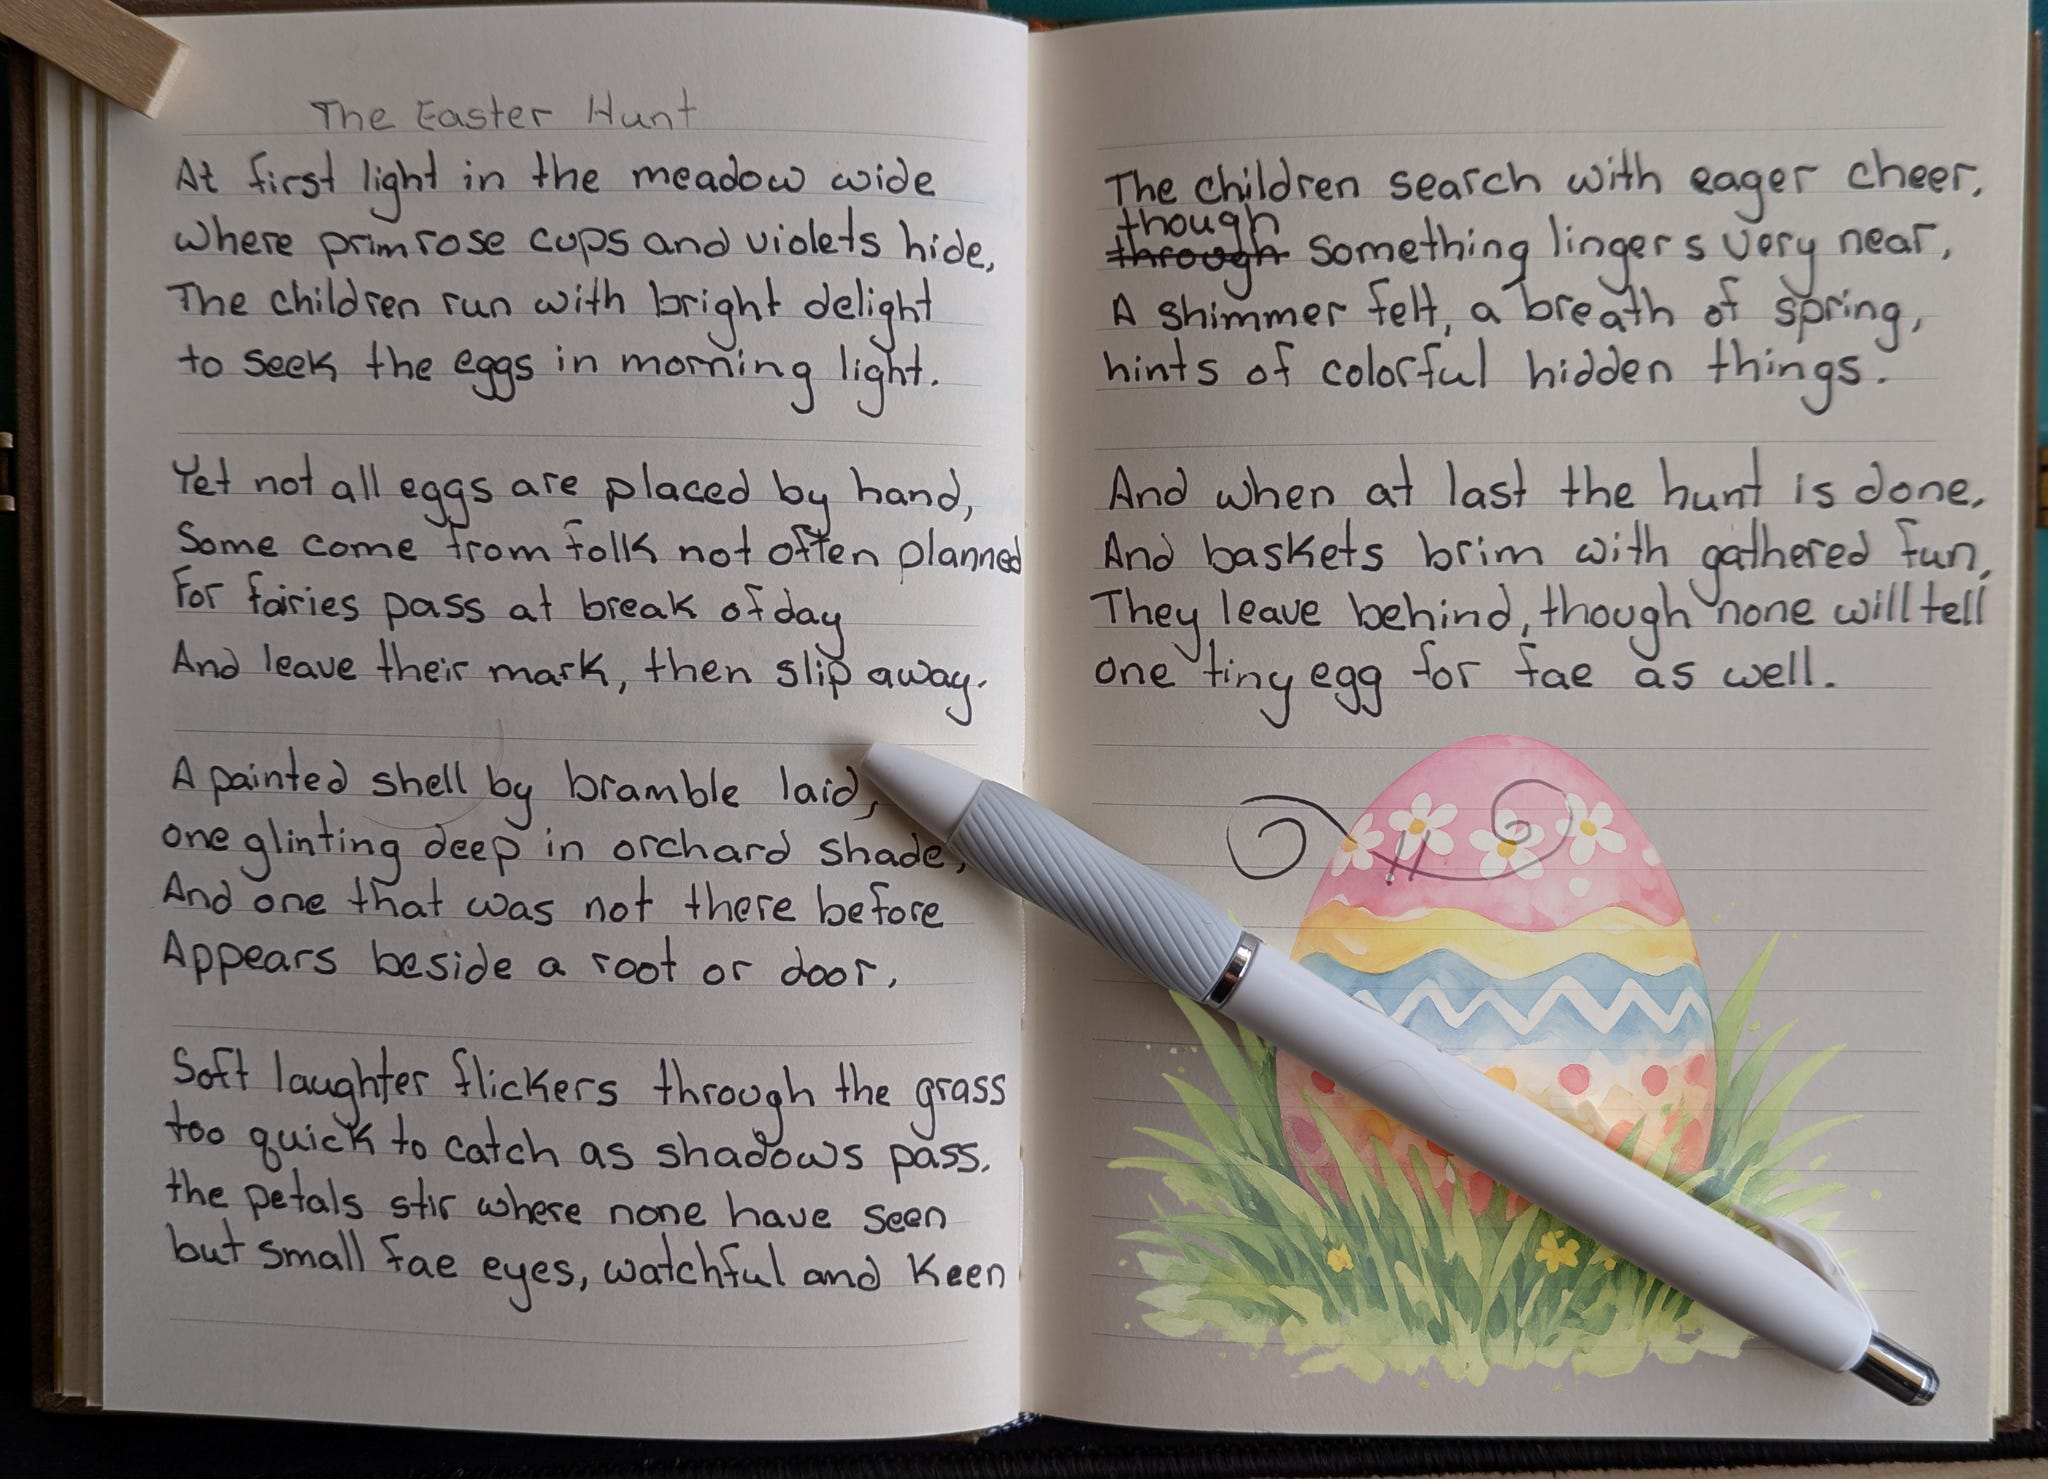 The Easter Hunt
At first light in the meadow wide
Where primrose cups and violets hide,
The children run with bright delight
to seek the eggs in morning light.
Yet not all eggs are placed by hand,
Some come from folk not often planned
For fairies pass at break of day
And leave their mark, then slip away.
A painted shell by bramble laid,
one glinting deep in orchard shade,
And one that was not there before
Appears beside a root or door.
Soft laughter flickers through the grass
too quick to catch as shadows pass.
the petals stir where none have seen
but small fae eyes, watchful and keen
The children search with eager cheer,
though
through something lingers very near,
A shimmer felt, a breath of spring,
hints of colorful hidden things.
And when at last the hunt is done,
And baskets brim with gathered fun,
They leave behind, though none will tell
one tiny egg for fae as well.